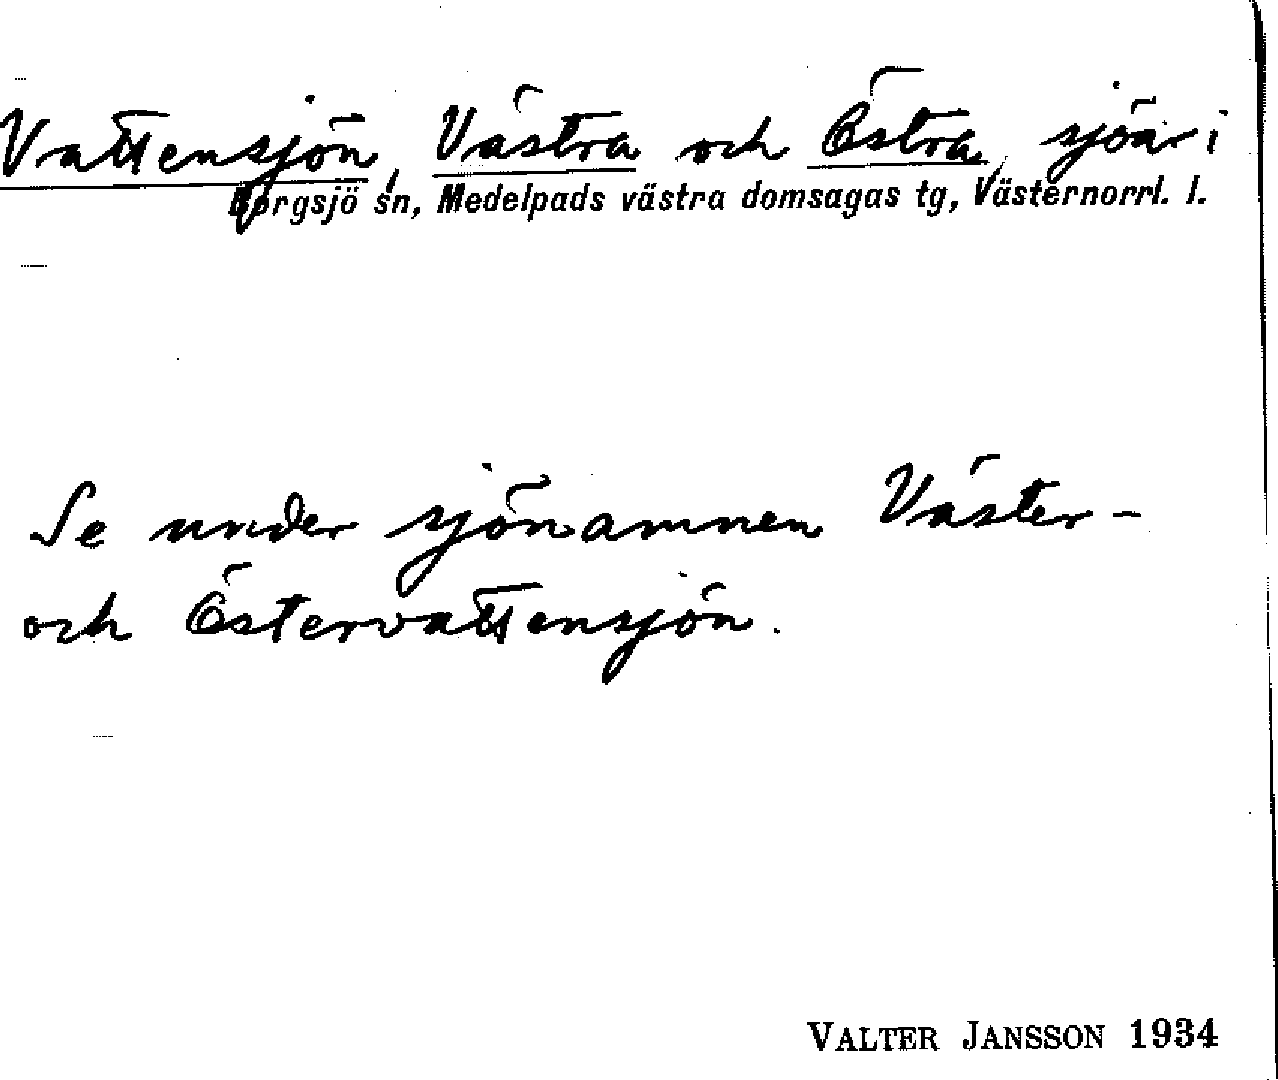 Vattensjön, Västra och Östra, sjöar i
Borgsjö sn, Medelpads västra domsagas tg, Västernorrl. l.
Se under sjönamnen Väster-
och Östervattensjön.
VALTER JANSSON 1934